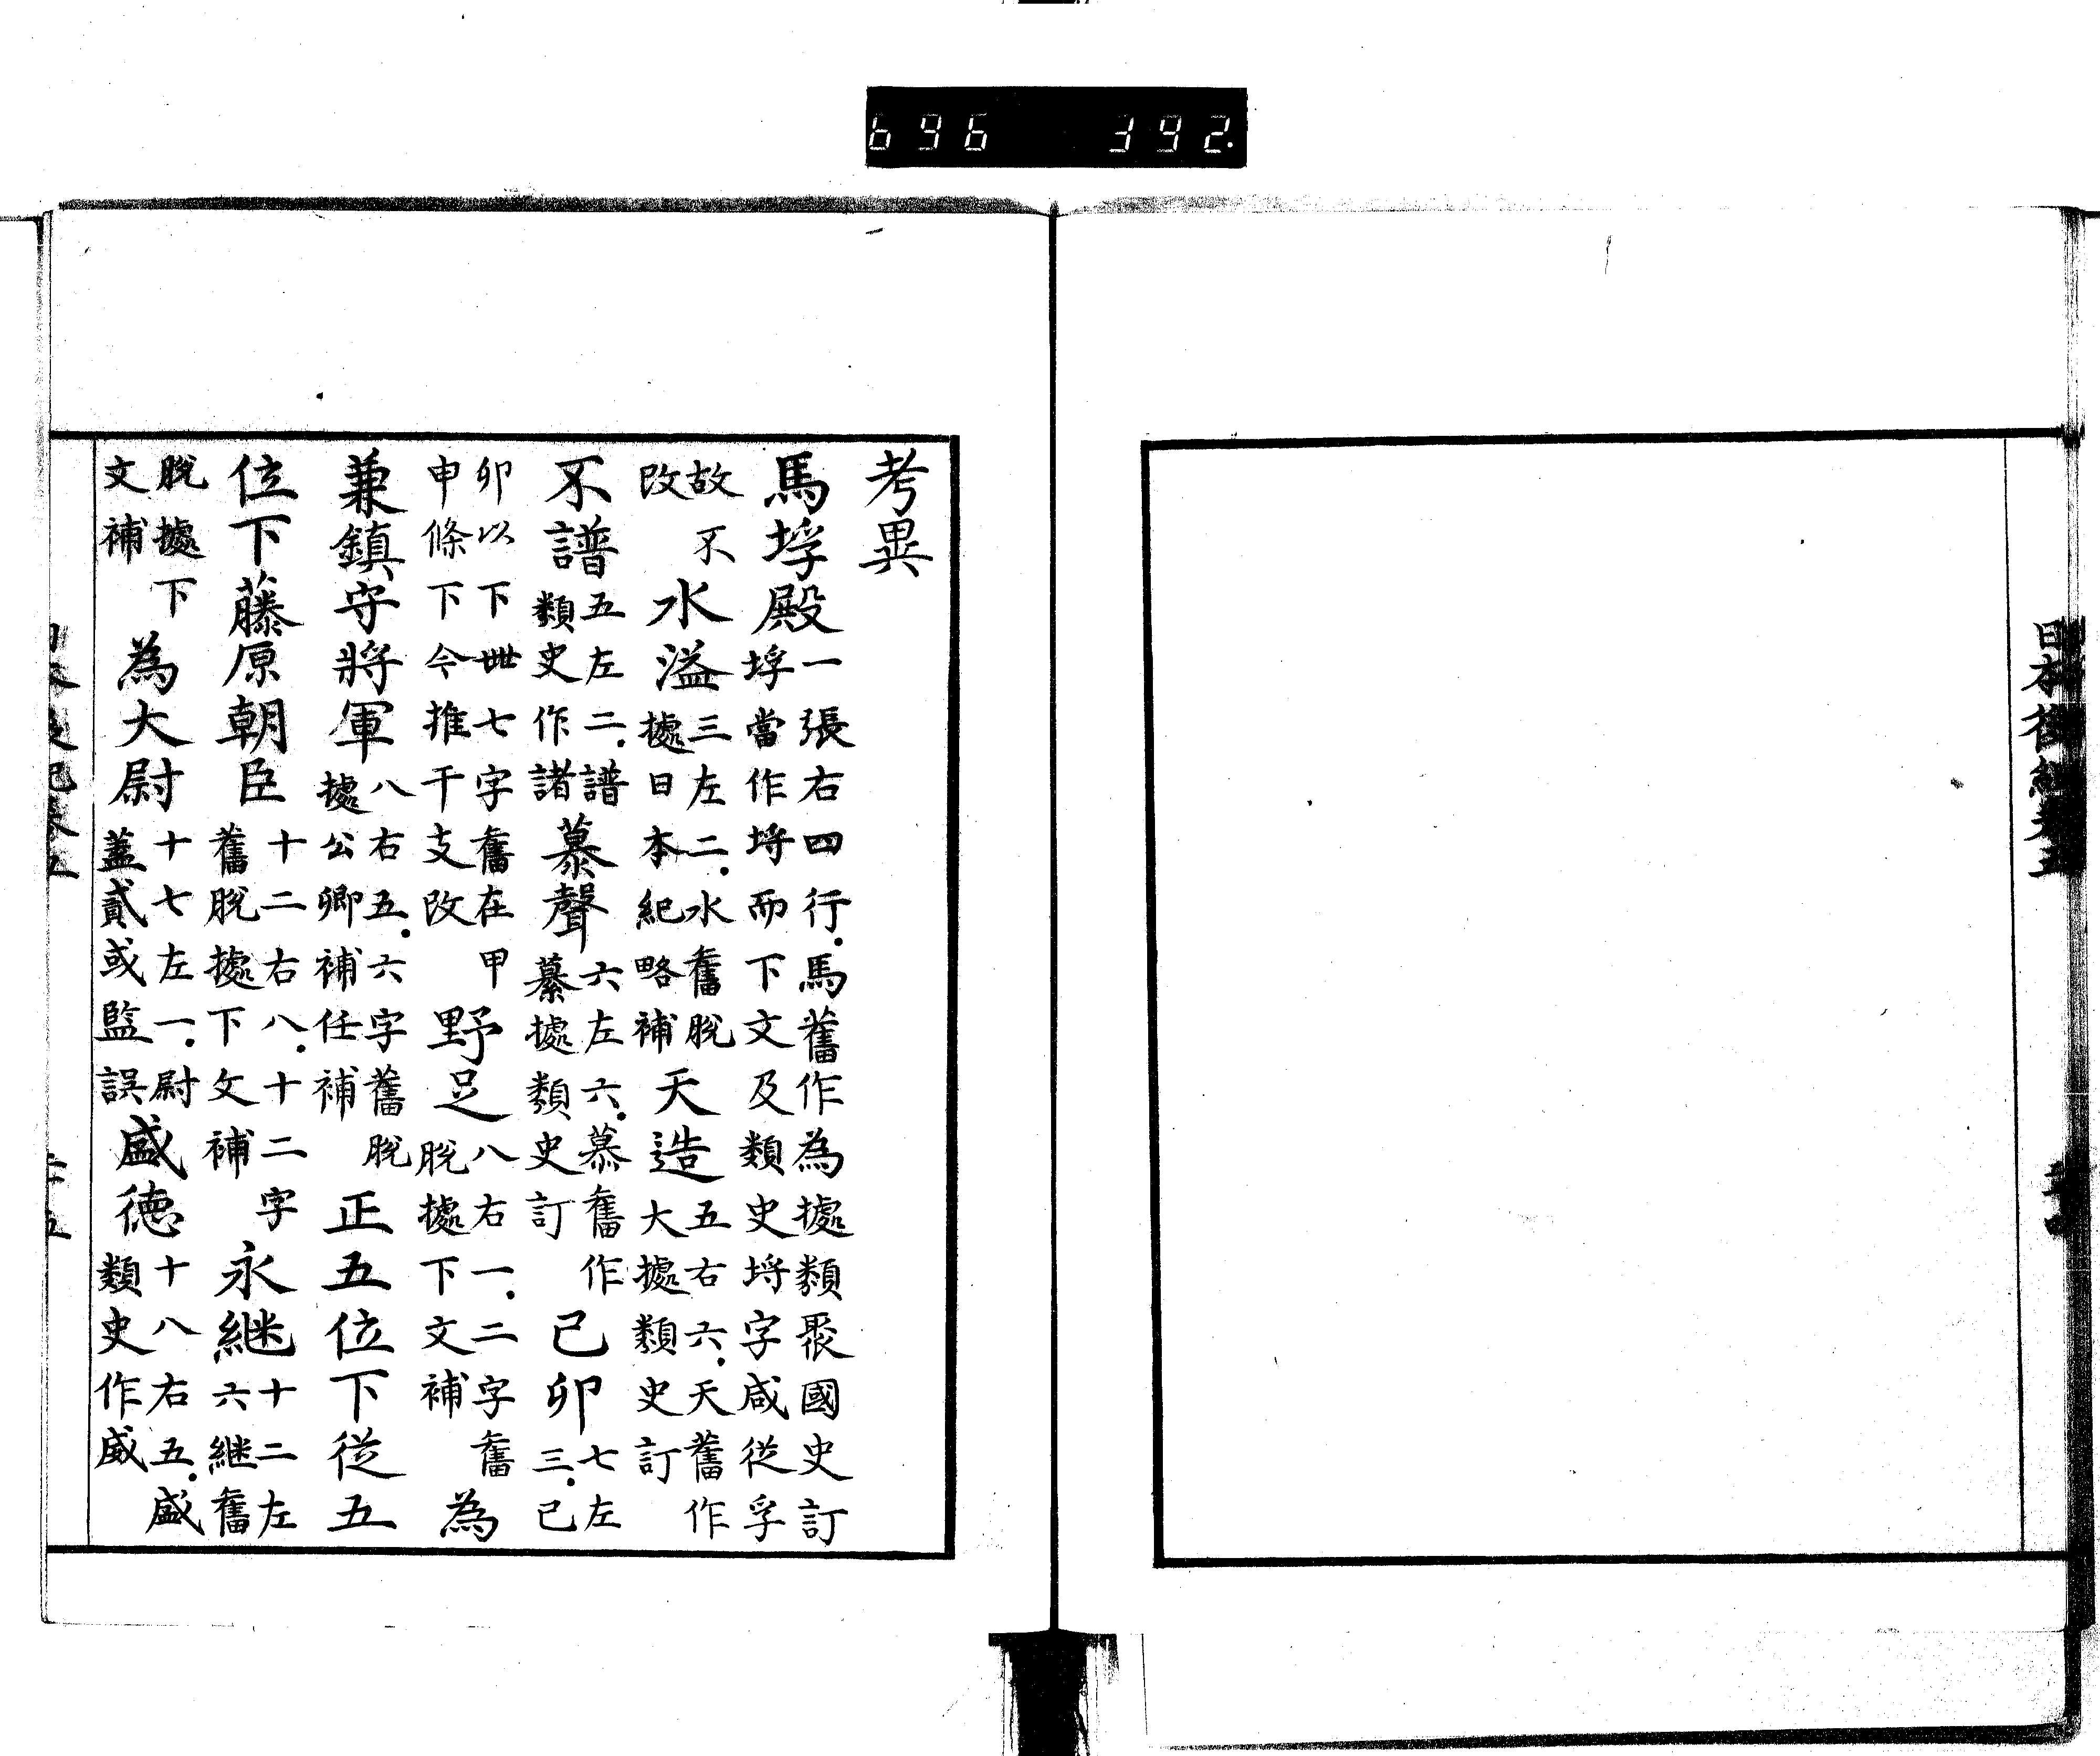 696 392
日本後紀卷五
考異
馬垺殿
一張右四行.馬舊作為據類聚國史訂
垺當作埒而下文及類史埒字咸從孚
故不
改
水溢
三左二.水舊脫
據日本紀略補
天造
五右六.天舊作
大據類史訂
不譜
五左二.譜
類史作諸
慕聲
六左六.慕舊作
纂據類史訂
己卯
七左
三.己
卯以下丗七字舊在甲
申條下今推干支改
野足
八右一.二字舊
脫據下文補
為
兼鎮守將軍
八右五.六字舊脫
據公卿補任補
正五位下從五
位下藤原朝臣
十二右八.十二字
舊脫據下文補
永継
十二左
六継舊
脫據下
文補
為大尉
十七左一.尉
蓋貳或監誤
盛德
十八右五.盛
類史作威